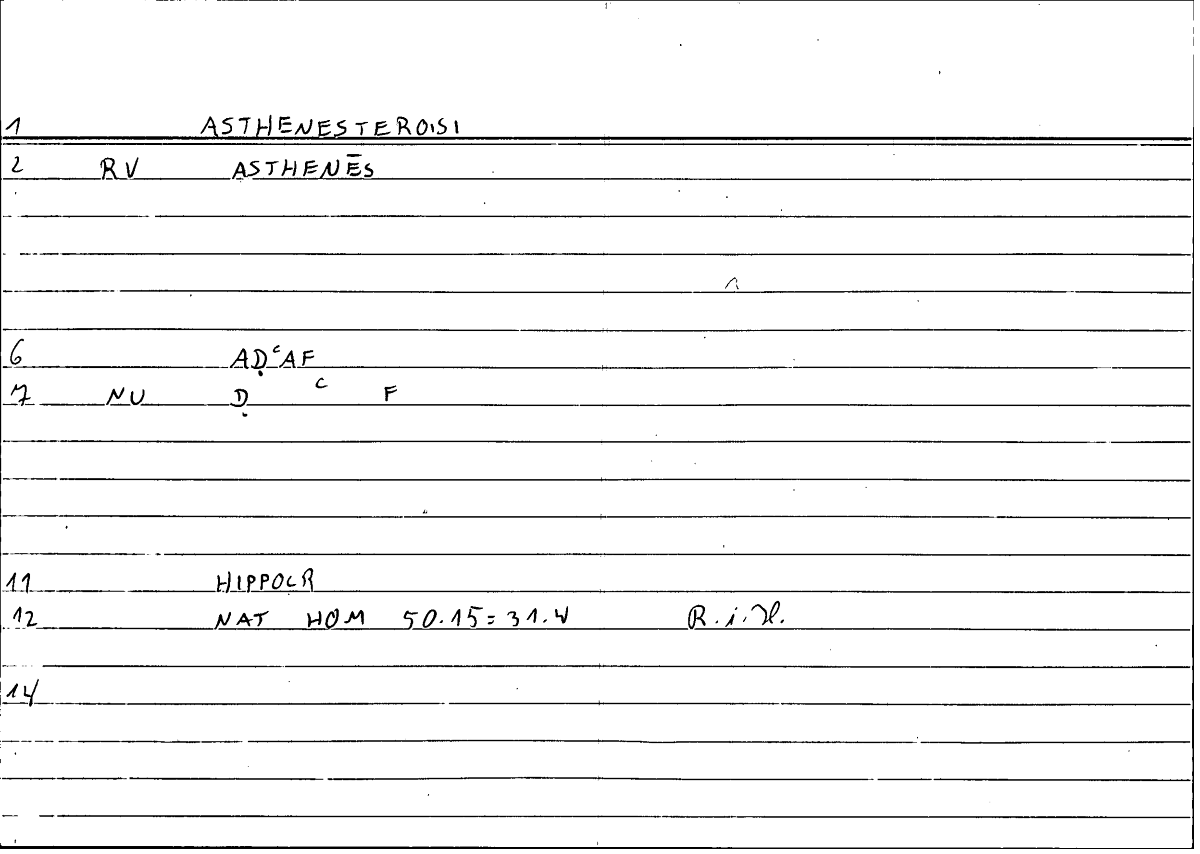 1 ASTHENESTEROISI
2 RV ASTHENĒS
6 AḌᶜAF
7 NU Ḍ ᶜ F
11 HIPPOCR
12 NAT HOM 50.15=31.4 R.i.H.
14